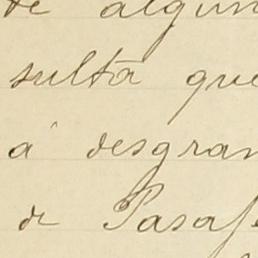 de algun
sulta que
á desgran
de Pasaje